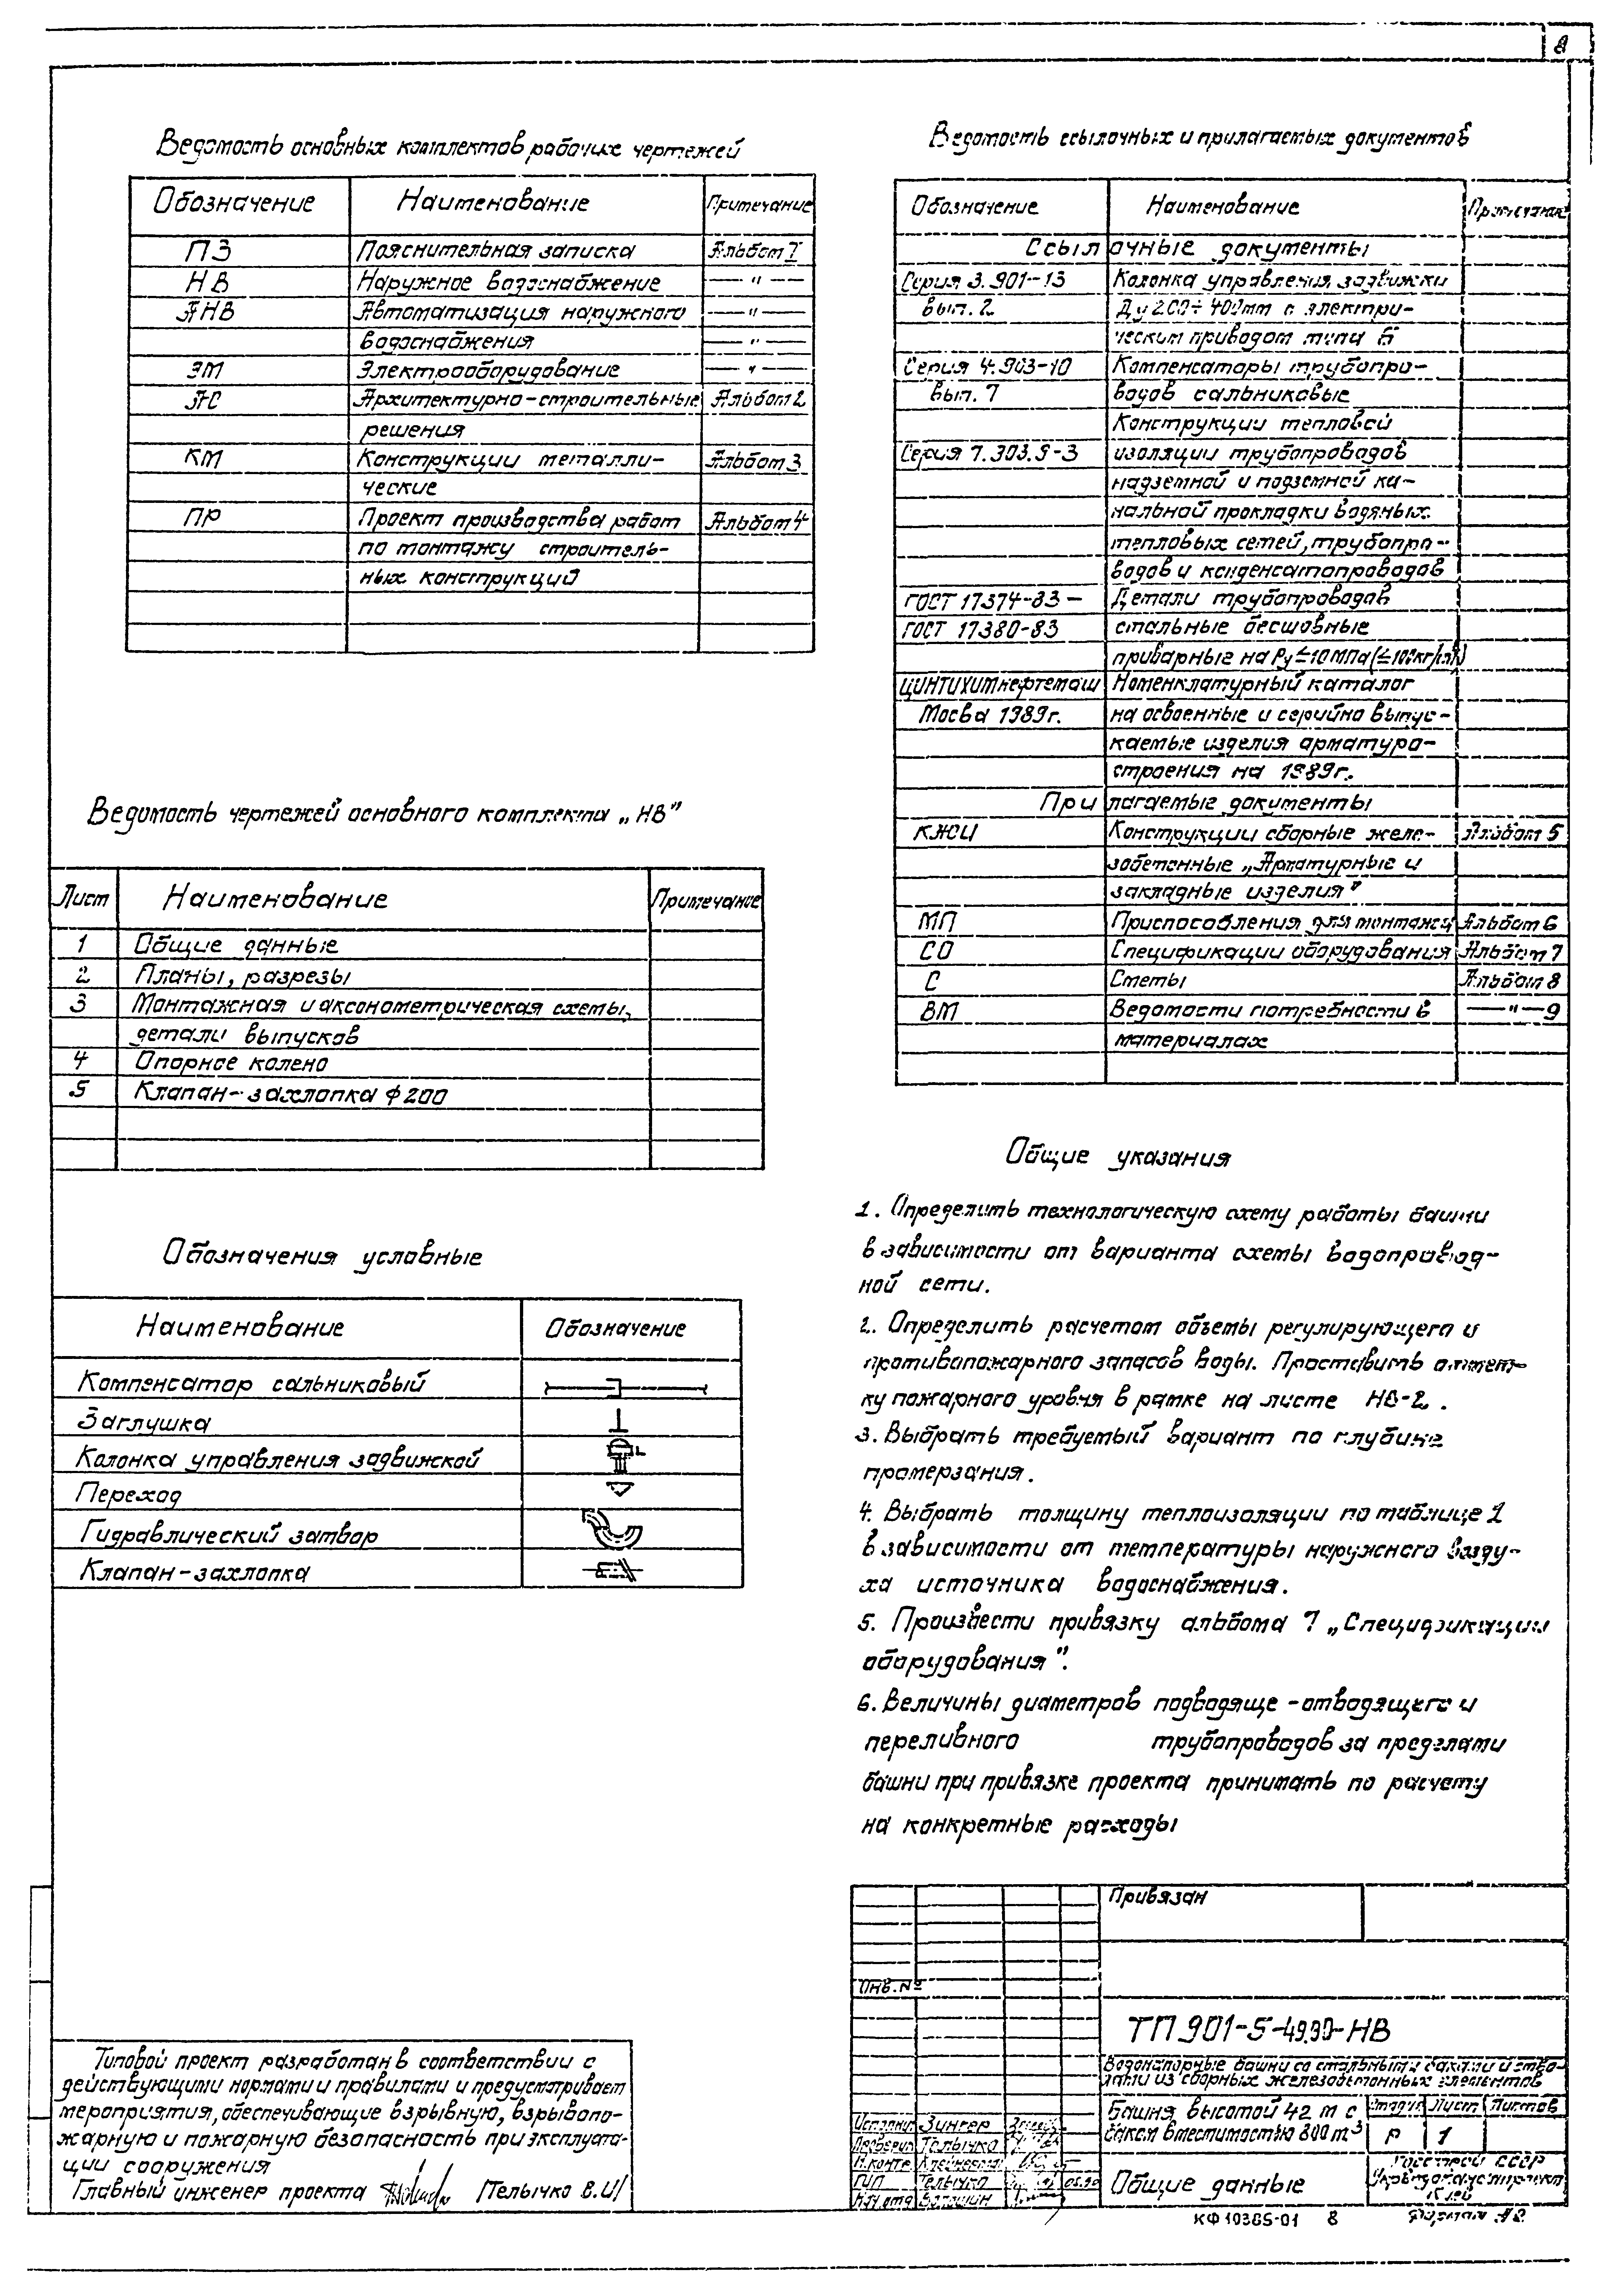 8
Ведомость основных комплектов рабочих чертежей
Обозначение Наименование Примечание
ПЗ Пояснительная записка Альбом 1
НВ Наружное водоснабжение —"—
АНВ Автоматизация наружного —"—
водоснабжения —"—
ЭМ Электрооборудование —"—
АС Архитектурно-строительные Альбом 2
решения
КМ Конструкции металли-
ческие Альбом 3
ПР Проект производства работ Альбом 4
по монтажу строитель-
ных конструкций
Ведомость чертежей основного комплекта „НВ"
Лист Наименование Примечание
1 Общие данные
2 Планы, разрезы
3 Монтажная и аксонометрическая схемы,
детали выпусков
4 Опорное колено
5 Клапан-захлопка ф 200
Обозначения условные
Наименование Обозначение
Компенсатор сальниковый
Заглушка
Колонка управления задвижкой
Переход
Гидравлический затвор
Клапан-захлопка
Типовой проект разработан в соответствии с
действующими нормами и правилами и предусматривает
мероприятия, обеспечивающие взрывную, взрывопо-
жарную и пожарную безопасность при эксплуата-
ции сооружения
Главный инженер проекта /Пелычко В.И/
Ведомость ссылочных и прилагаемых документов
Обозначение Наименование Примечание
Ссылочные документы
Серия 3.901-13 Колонка управления задвижки
вып. 2 Ду 200÷400мм с электри-
ческим приводом типа Б
Серия 4.903-10 Компенсаторы трубопро-
вып. 7 водов сальниковые
Конструкции тепловой
Серия 7.903.9-3 изоляции трубопроводов
надземной и подземной ка-
нальной прокладки водяных
тепловых сетей, трубопро-
водов и конденсатопроводов
ГОСТ 17374-83 — Детали трубопроводов
ГОСТ 17380-83 стальные бесшовные
приварные на Ру ≤10 МПа (≤100кг/см²)
ЦИНТИХИМнефтемаш Номенклатурный каталог
Мосва 1989г. на освоенные и серийно выпус-
каемые изделия арматуро-
строения на 1989г.
Прилагаемые документы
КЖИ Конструкции сборные желе- Альбом 5
зобетонные „Арматурные и
закладные изделия"
МП Приспособления для монтажа Альбом 6
СО Спецификации оборудования Альбом 7
С Сметы Альбом 8
ВМ Ведомости потребности в —"—9
материалах
Общие указания
1. Определить технологическую схему работы башни
в зависимости от варианта схемы водопровод-
ной сети.
2. Определить расчетом объемы регулирующего и
противопожарного запасов воды. Проставить отмет-
ку пожарного уровня в рамке на листе НВ-2.
3. Выбрать требуемый вариант по глубине
промерзания.
4. Выбрать толщину теплоизоляции по таблице 1
в зависимости от температуры наружного возду-
ха источника водоснабжения.
5. Произвести привязку альбома 7 „Спецификации
оборудования".
6. Величины диаметров подводяще-отводящего и
переливного трубопроводов за пределами
башни при привязке проекта принимать по расчету
на конкретные расходы
Привязан
Инв. №
ТП 901-5-49.90-НВ
Водонапорные башни со стальными баками и ство-
лами из сборных железобетонных элементов
Башня высотой 42 м с
баком вместимостью 800 м³
Стадия Лист Листов
Р 1
Исполнил Зингер
Проверил Пелычко
Н.контр
ГИП Пелычко 05.90
Нач.отд Волошин
Общие данные
Госстрой СССР
Киев
КФ 10385-01 8 Формат А2